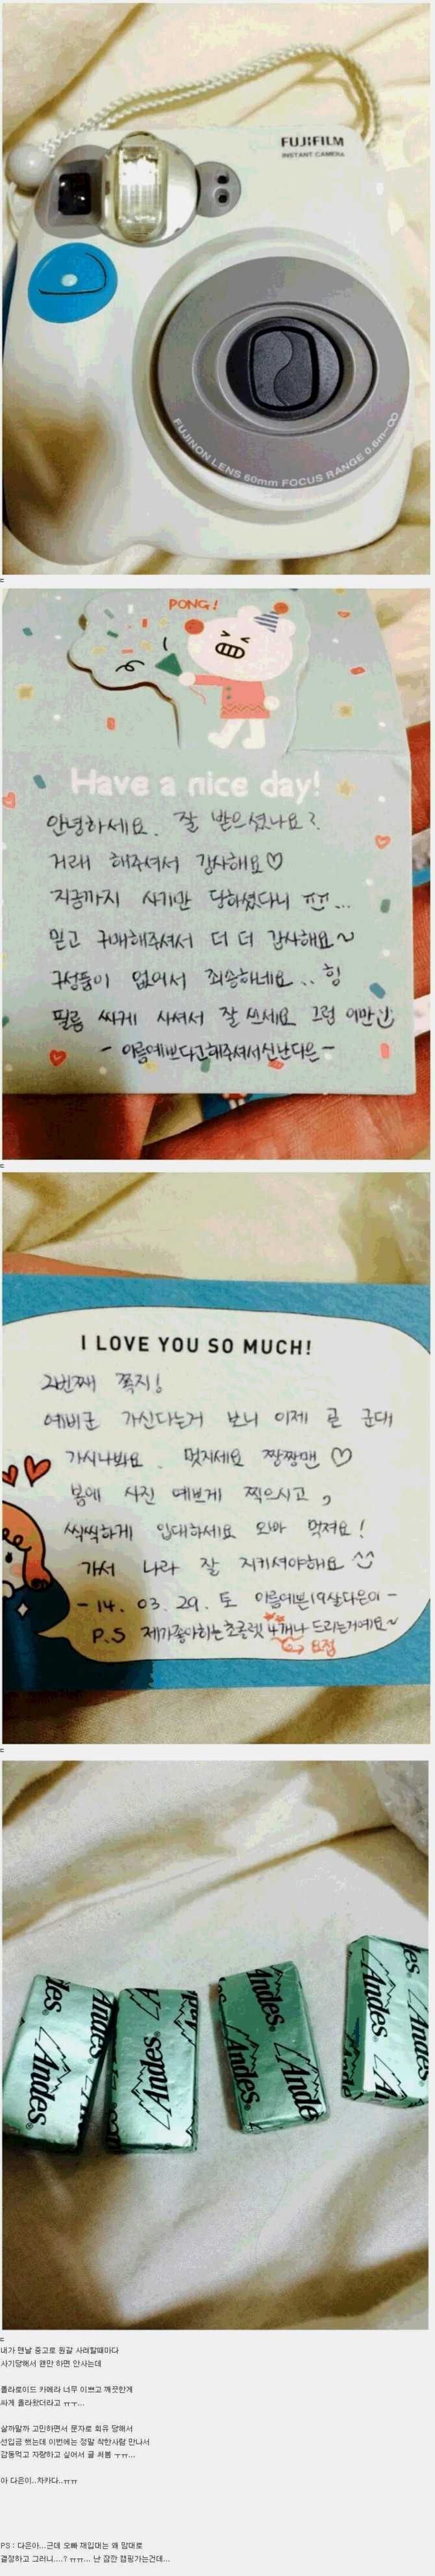 FUJIFILM
INSTANT CAMERA
FUJINON LENS 60mm FOCUS RANGE 0.6m-∞
PONG!
Have a nice day!
안녕하세요. 잘 받으셨나요?
거래 해주셔서 감사해요♡
지금까지 사기만 당하셨다니 ㅠㅠ...
믿고 구매해주셔서 더 더 감사해요~
구성품이 없어서 죄송하네요.. 힝
필름 싸게 사셔서 잘 쓰세요 그럼 이만
- 이름예쁘다고해주셔서신난다은 -
I LOVE YOU SO MUCH!
2번째 쪽지!
예비군 가신다는거 보니 이제 곧 군대
가시나봐요. 멋지세요 짱짱맨 ♡
봄에 사진 예쁘게 찍으시고,
씩씩하게 입대하세요 오빠 멋져요!
가서 나라 잘 지키셔야해요 ^^
- 14. 03. 29. 토 이름예쁜19살다은이 -
P.S 제가좋아하는초콜렛 4개나 드리는거예요~
요점
Andes
Andes
Andes
Andes
내가 맨날 중고로 뭔갈 사려할때마다
사기당해서 왠만 하면 안사는데
폴라로이드 카메라 너무 이쁘고 깨끗한게
싸게 올라왔더라고 ㅠㅜ...
살까말까 고민하면서 문자로 회유 당해서
선입금 했는데 이번에는 정말 착한사람 만나서
감동먹고 자랑하고 싶어서 글 써봄 ㅜㅠ...
아 다은이..차카다..ㅠㅠ
PS : 다은아...근데 오빠 재입대는 왜 맘대로
결정하고 그러니....? ㅠㅠ... 난 잠깐 캠핑가는건데...